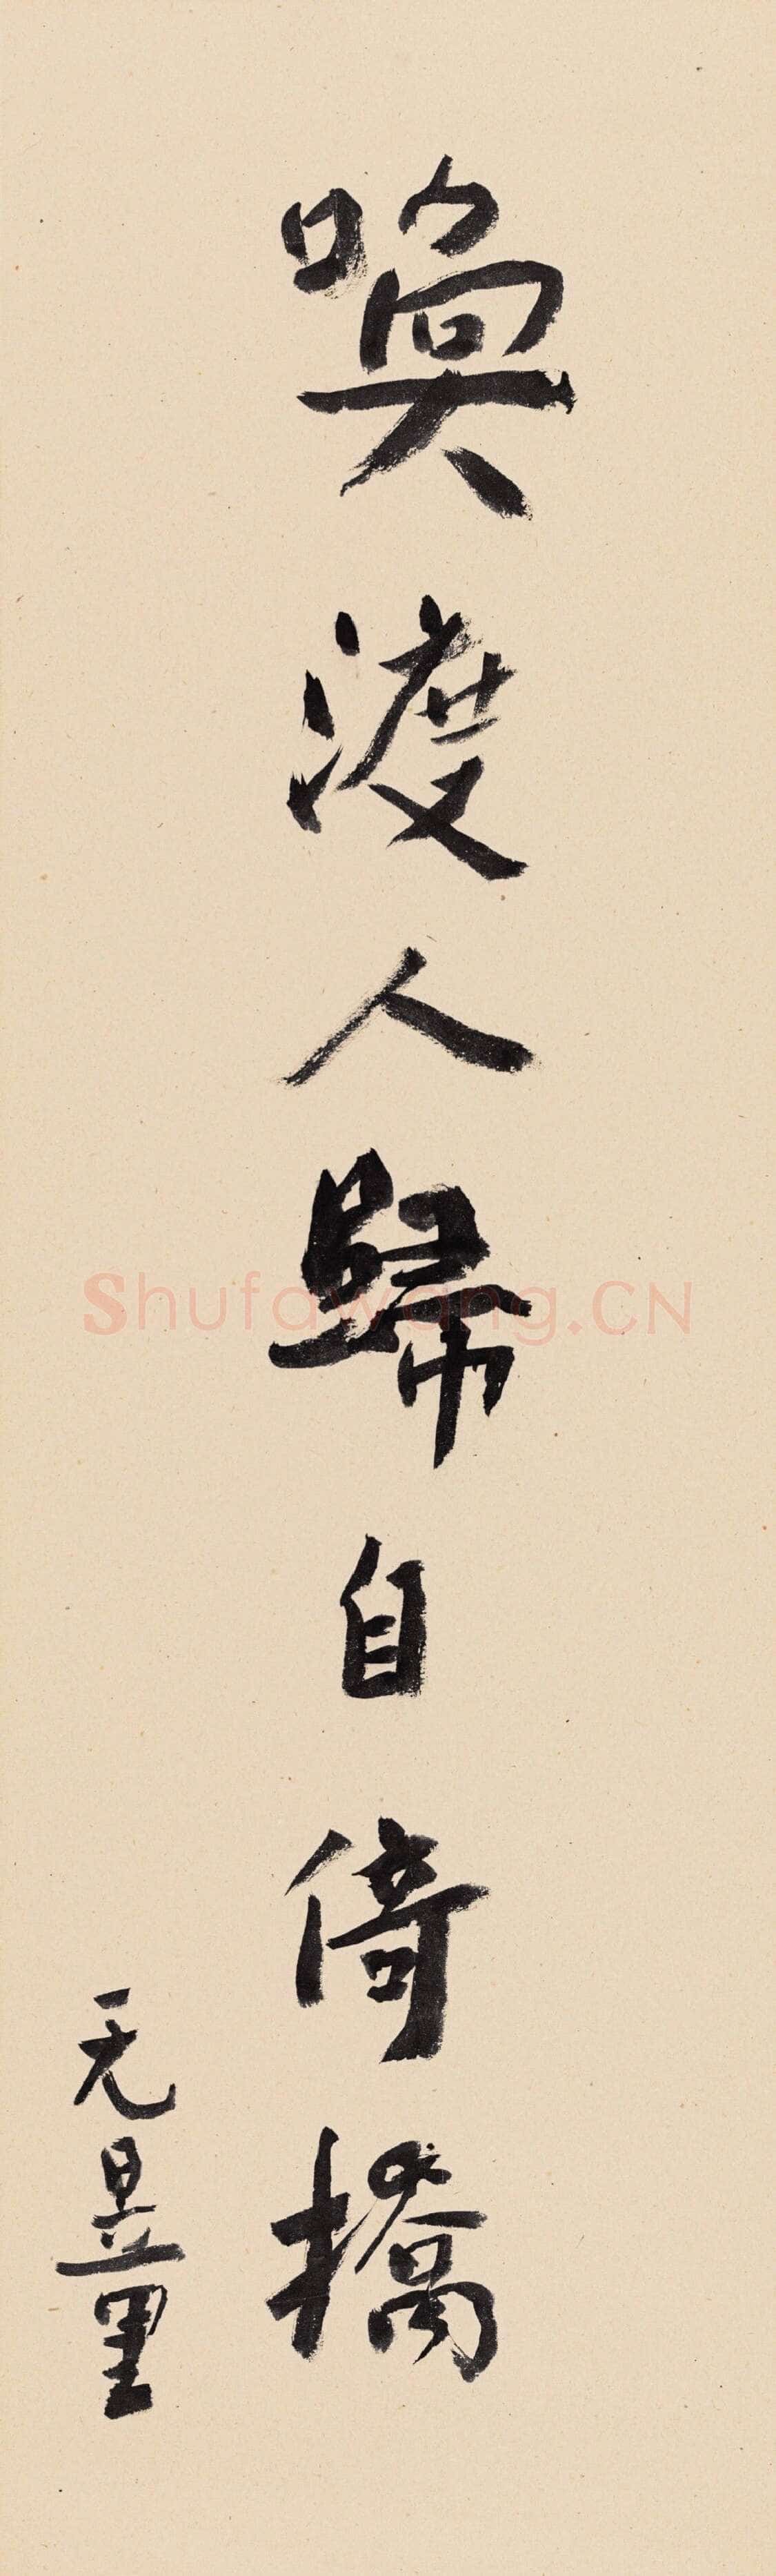 喚渡人歸自倚橋
无量
Shufawang.CN